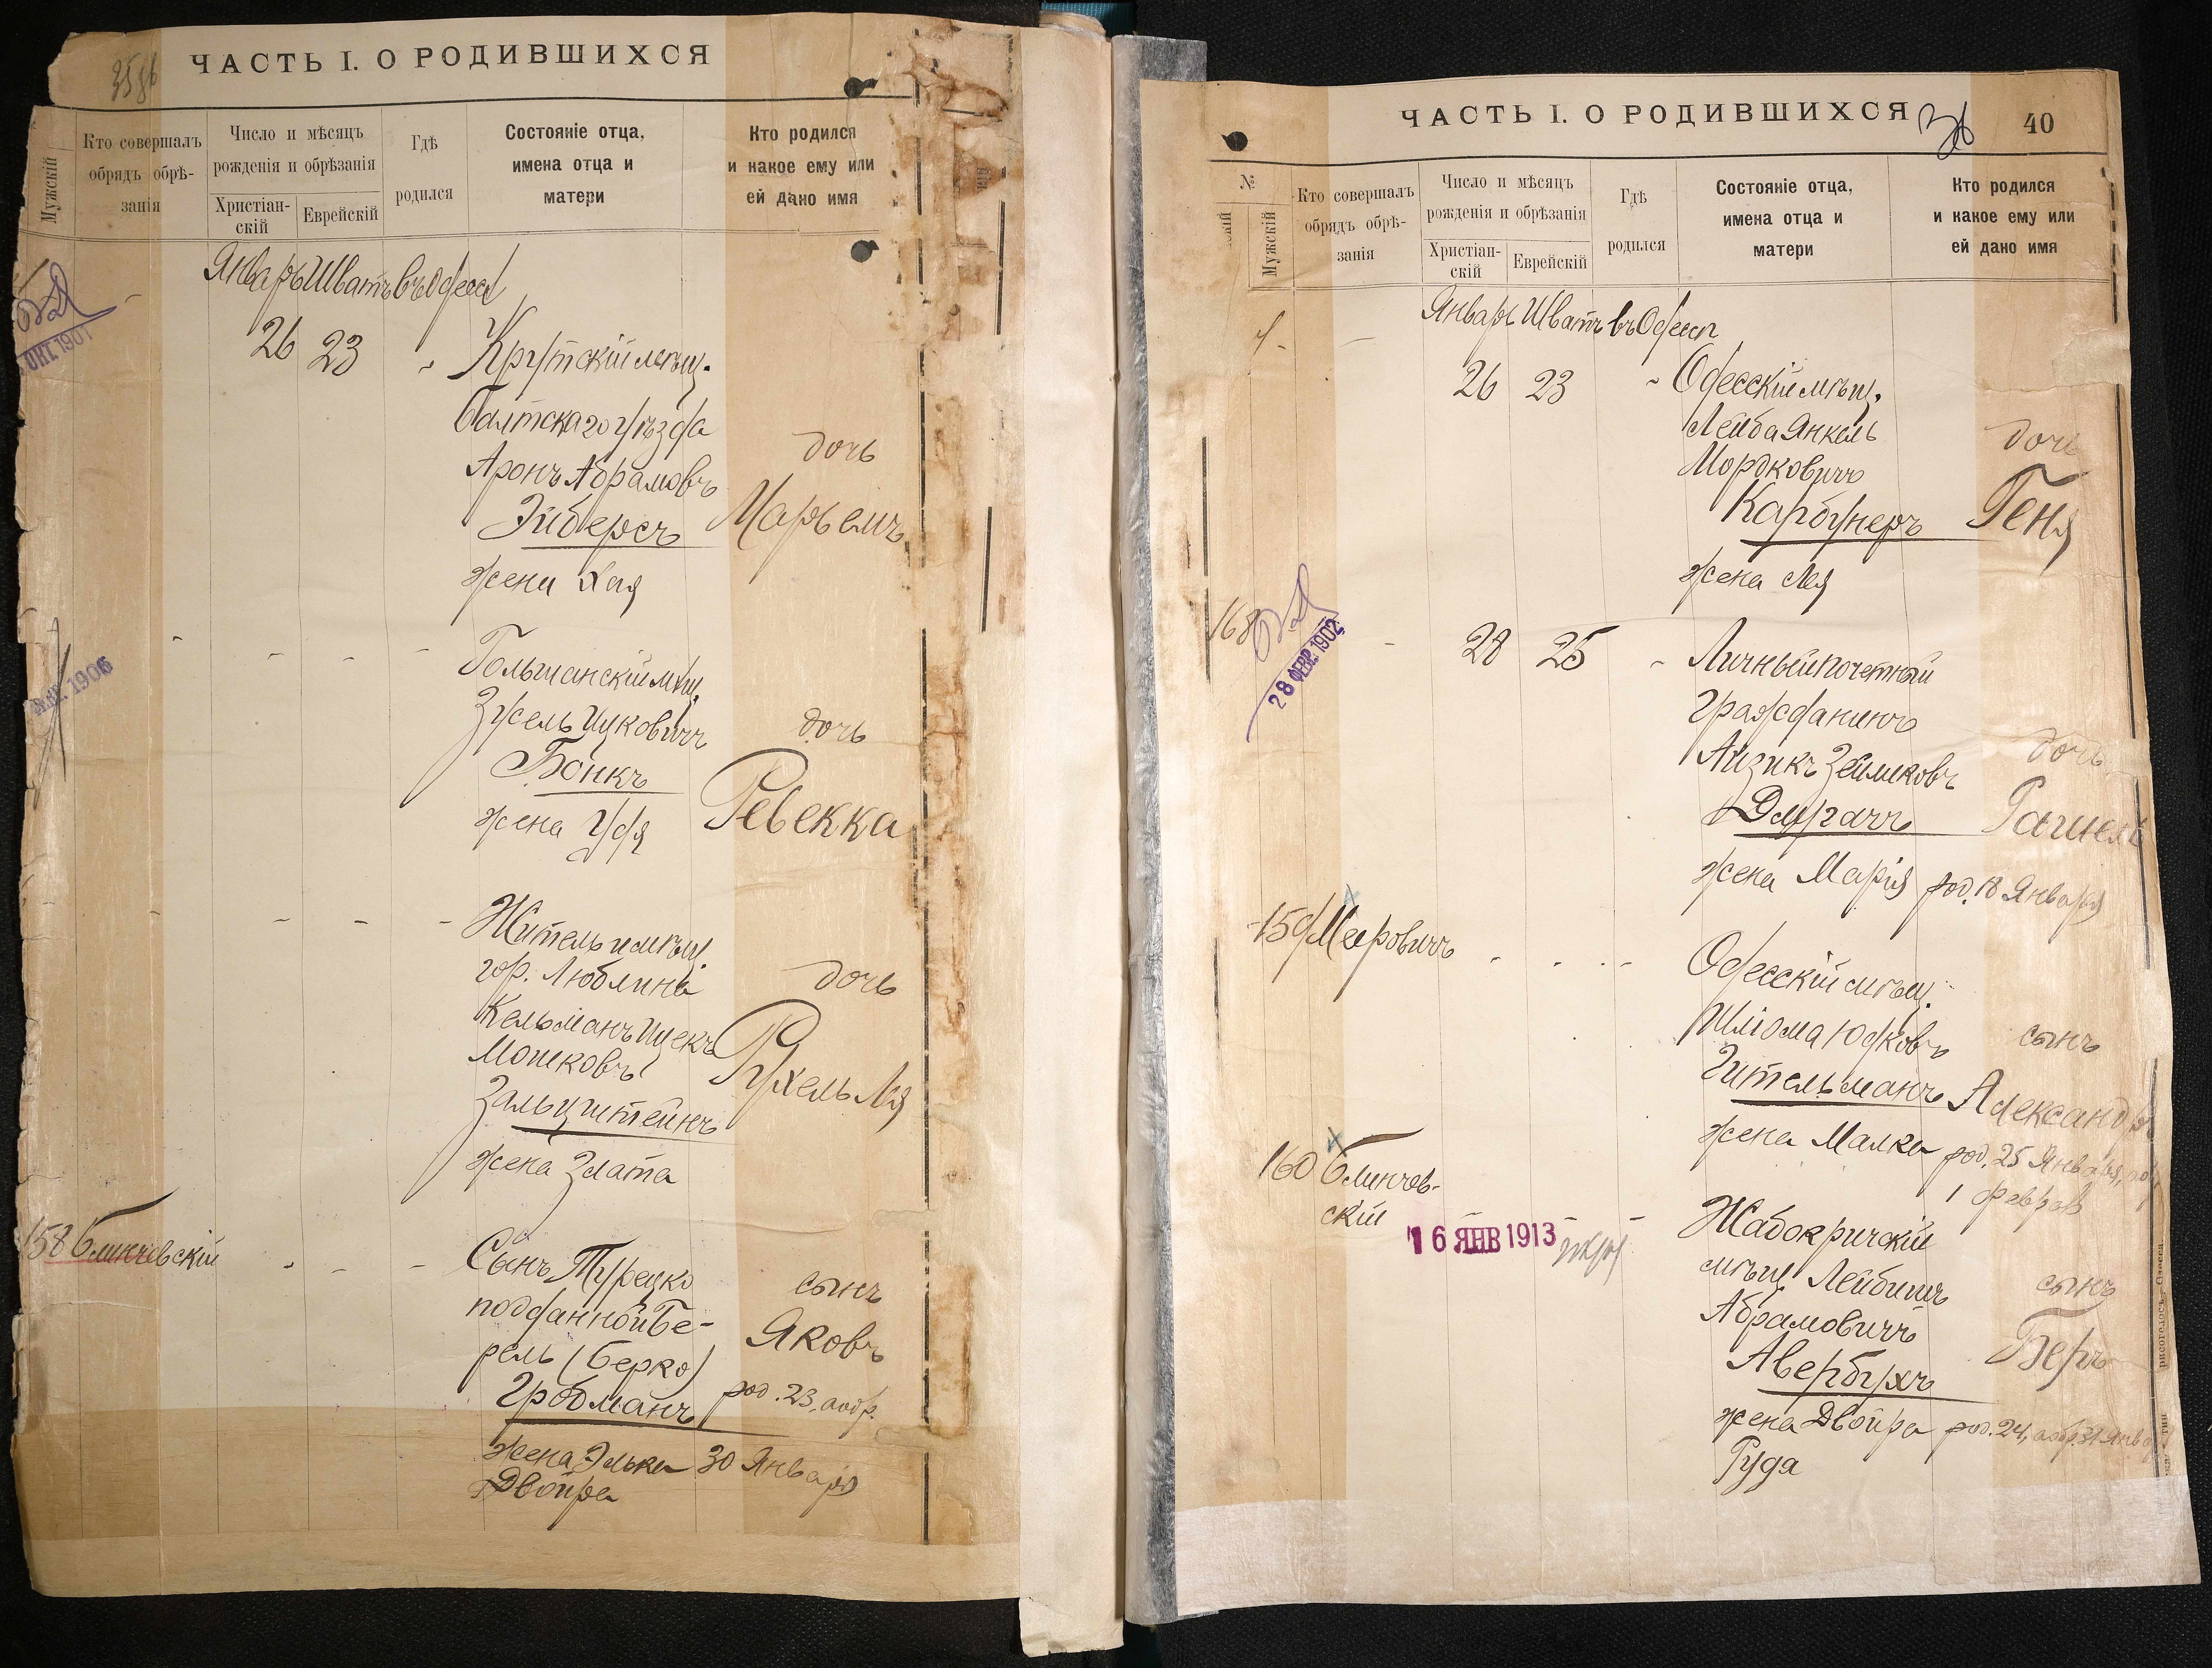 ЧАСТЬ I. О РОДИВШИХСЯ
Мужскій
Кто совершалъ
обрядъ обрѣ-
занія
Число и мѣсяцъ
рожденія и обрѣзанія
Христіан-
скій
Еврейскій
Гдѣ
родился
Состояніе отца,
имена отца и
матери
Кто родился
и какое ему или
ей дано имя
Январь Шватъ въ Одессѣ
ОКТ. 1901
26 23 Крутскій мѣщ.
Балтскаго уѣзда
Аронъ Абрамовъ
Эйберсъ
жена Хая
дочь
Марьемъ
1906
Гольшанскій мѣщ.
Зусель Ицковичъ
Бонкъ
жена Удя
дочь
Ревекка
Житель и мѣщ.
гор. Люблина
Кельманъ Ицекъ
Мошковъ
Зальцштейнъ
жена Злата
дочь
Рухель Лея
158 Блинчевскій
Сынъ Турецко
подданной Бе-
рель (Берко)
Гробманъ
жена Элька
Двойра
сынъ
Яковъ
род. 23, аобр.
30 Января
ЧАСТЬ I. О РОДИВШИХСЯ
40
№
Мужскій
Кто совершалъ
обрядъ обрѣ-
занія
Число и мѣсяцъ
рожденія и обрѣзанія
Христіан-
скій
Еврейскій
Гдѣ
родился
Состояніе отца,
имена отца и
матери
Кто родился
и какое ему или
ей дано имя
Январь Шватъ въ Одессѣ
26 23 Одесскій мѣщ.
Лейба Янкель
Мордковичъ
Карбунеръ
жена Лея
дочь
Геня
168
28 ФЕВР. 1902
28 25 Личный почетный
гражданинъ
Айзикъ Зейликовъ
Дмргачъ
жена Марія
дочь
Рашель
род. 18 Января
159 Мееровичъ
Одесскій мѣщ.
Шліома Юдковъ
Гительманъ
жена Малка
сынъ
Александръ
род. 25 Января,
1 Февраля
160 Блинчев-
скій
16 ЯНВ 1913
Жабокричскій
мѣщ. Лейбишъ
Абрамовичъ
Авербухъ
жена Двойра
Руда
сынъ
Беръ
род. 24, аобр. 31 Янв